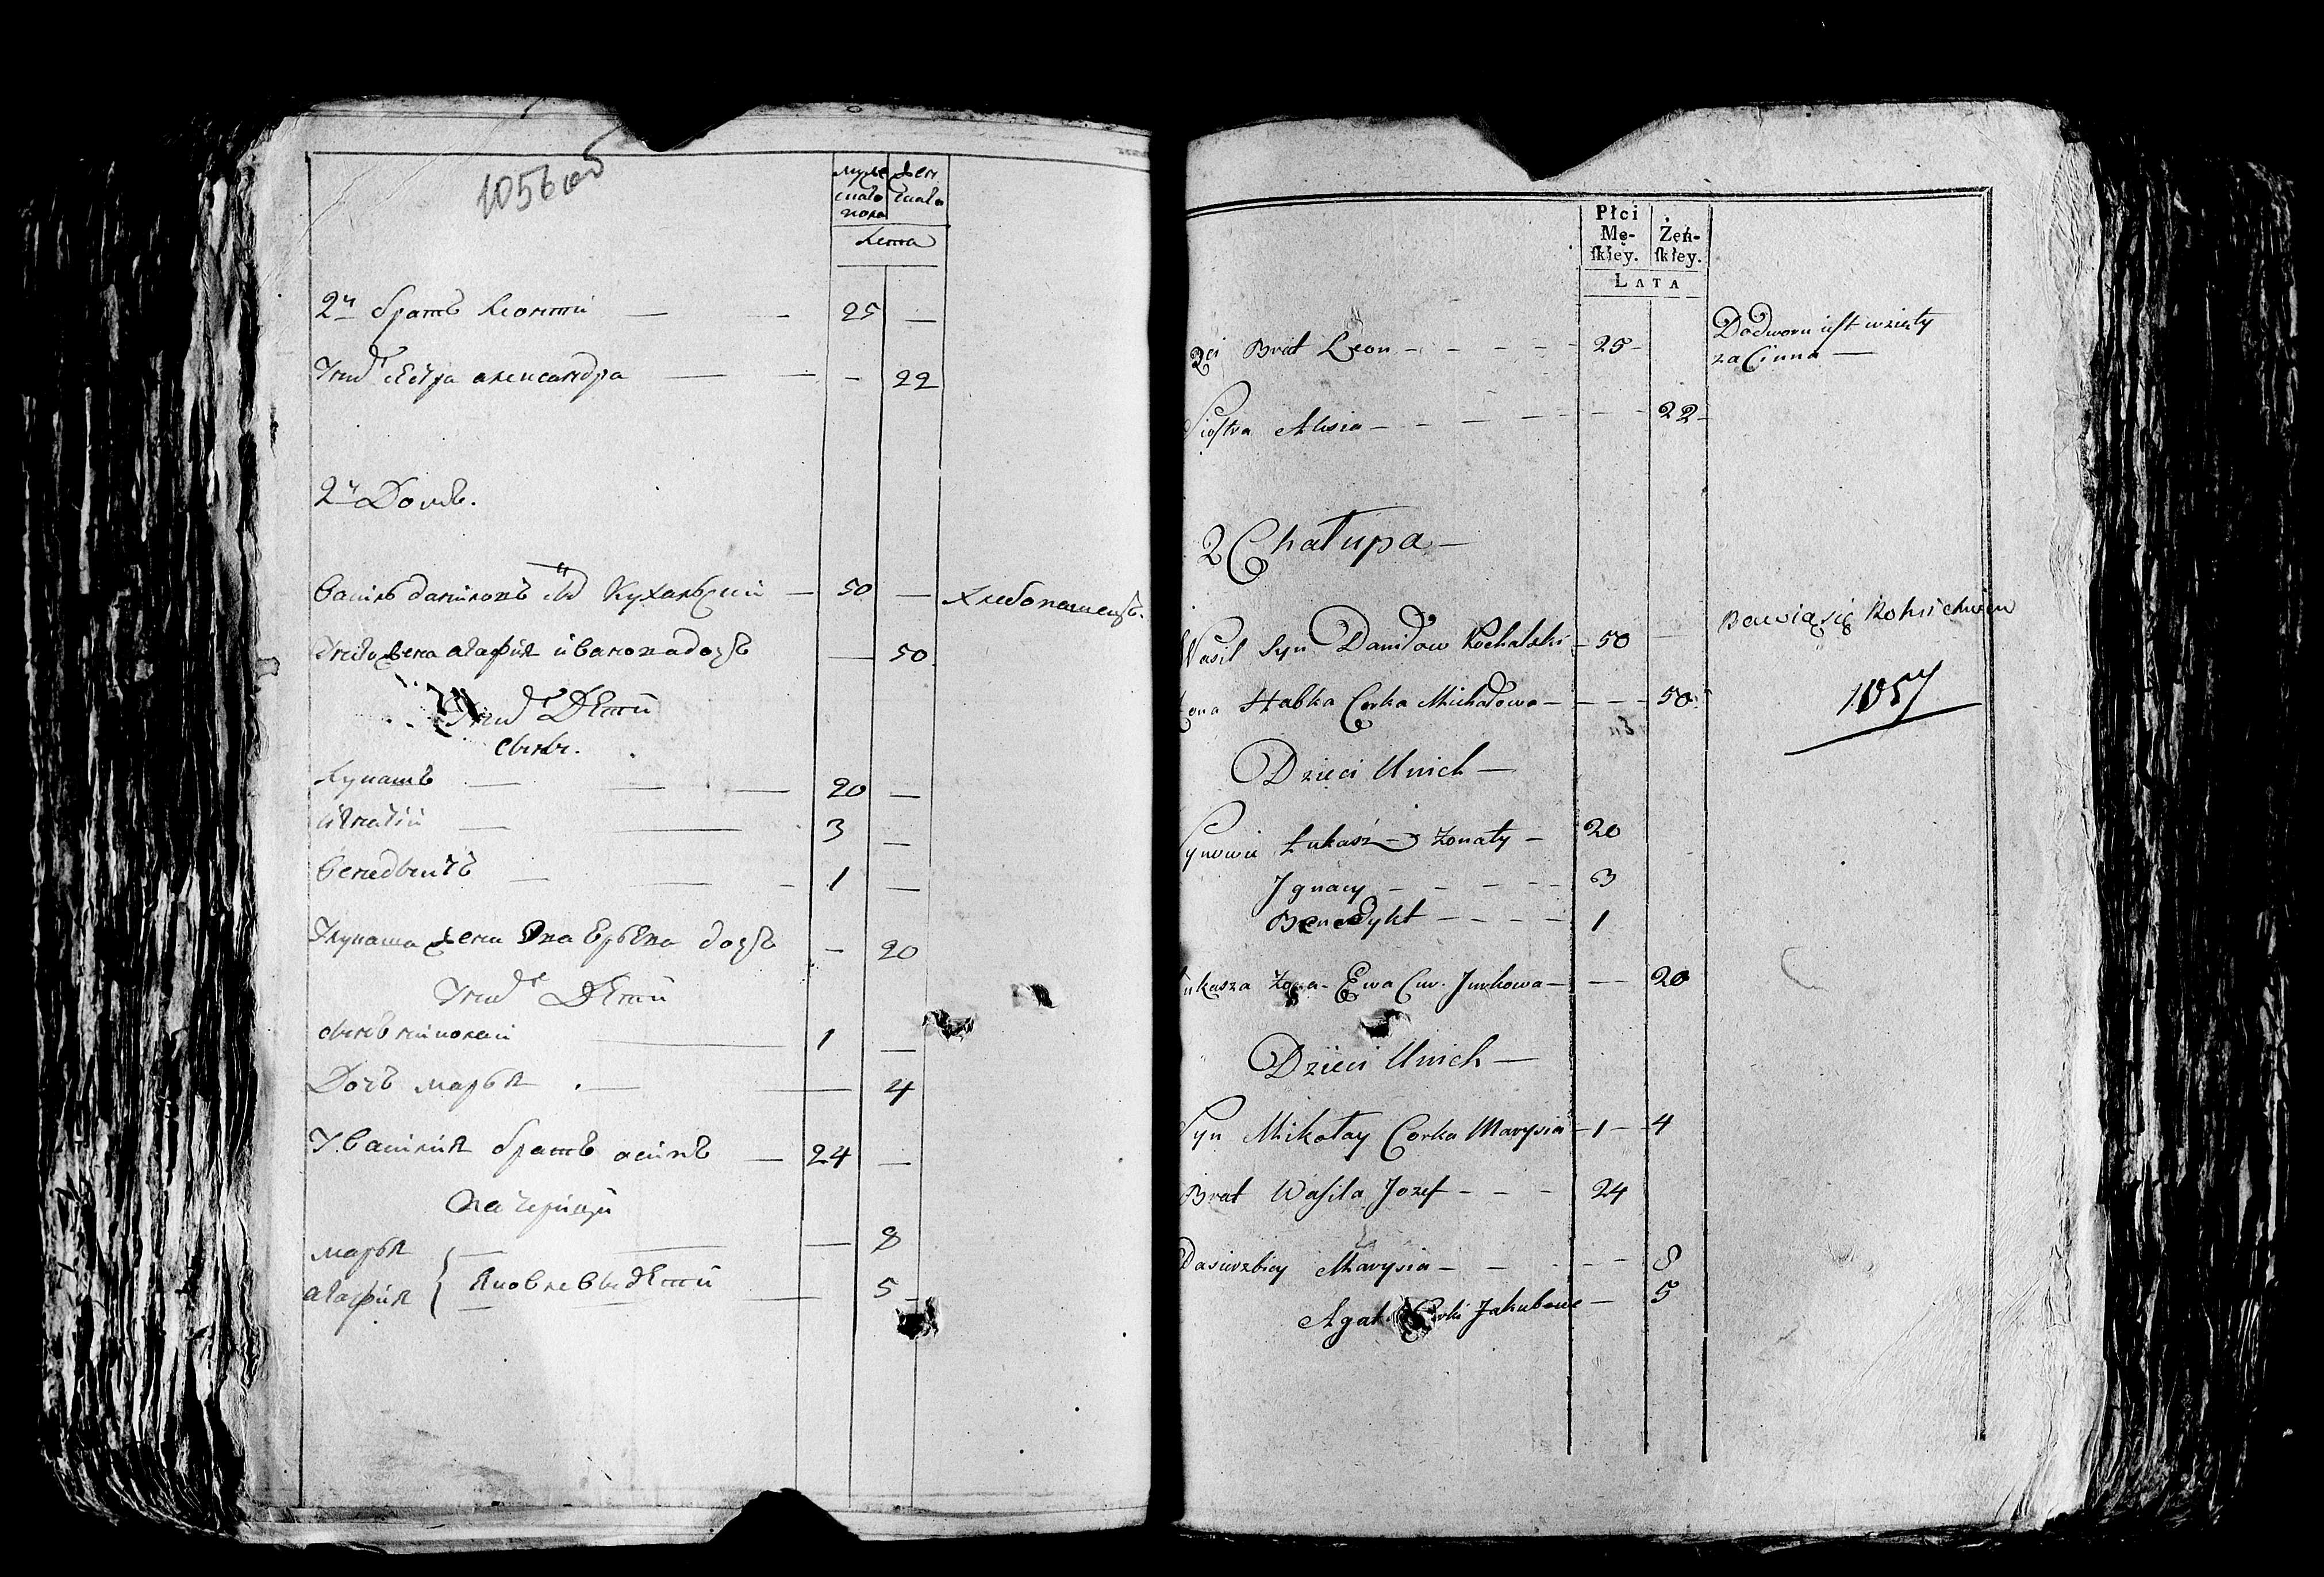 1056 об
муже
скаго
пола
жен
скаго
Лета
2й братъ Леонтiй — — 25 —
У нихъ сестра александра — — — 22
2й Домъ.
василь даниловъ сынъ Кухальскiй — 50 — Хлебопашецъ.
У него жена агафiя иванова дочь — 50
У нихъ Дети
сыны.
Лукашъ — — — 20 —
игнатiй — — 3 —
венедыктъ — — — 1 —
У лукаша жена Эва Юрьева дочь — 20
У нихъ Дети
сынъ николай — 1 —
Дочь марья — — 4
У василiя братъ осипъ — 24 —
Пасчерицы
марья — — — 8
агафiя Яковлевы дети — 5
Płci
Mę-
skiey.
Żeń-
skiey.
LATA
2gi Brat Leon - - - - - 25 - Do dworu iest wzięty
za Cinna —
Siostra Alisia - - - - - - 22 -
2 Chałupa —
Wasil Syn Daniłow Kochalski - 50 — Bawią się Rolnictwem
Żona Habka Corka Michałowa - - - - 50
1057
Dzieci Unich —
Synowie Łukasz - Żonaty - 20
Ignacy - - - - - 3
Benedykt - - - - 1
Łukasza Żona - Ewa Cur. Jurkowa - - - 20
Dzieci Unich —
Syn Mikołay Corka Marysia - 1 - 4
Brat Wasila Jozef - - - 24
Pasierzbicy Marysia - - - - - 8
Agat. Corki Jakubowe — 5